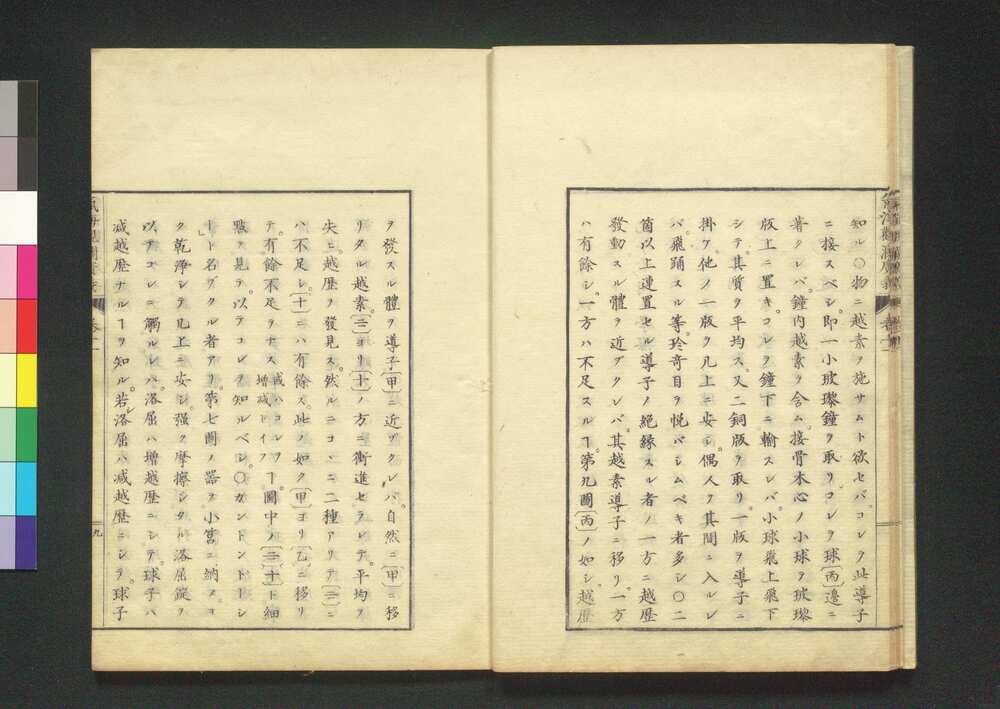 知ル〇物ニ越素ヲ施サムト欲セバ。コレヲ此導子
ニ接スベシ。即一小玻瓈鐘ヲ取リコレヲ球〔丙〕邊ニ
著クレバ。鐘内越素ヲ含ム。接骨木心ノ小球ヲ玻瓈
版上ニ置キ。コレヲ鐘下ニ輸スレバ。小球飛上飛下
シテ。其質ヲ平均ス。又二銅版ヲ取リ。一版ヲ導子ニ
掛ケ。他ノ一版ヲ几上ニ安シ。偶人ヲ其間ニ入ルレ
バ。飛踊スル等。玲奇目ヲ悦バシムベキ者多シ〇二
箇以上連置セル導子ノ絶縁スル者ノ一方ニ越歴
發動スル體ヲ近ヅクレバ。其越素導子ニ移リ。一方
ハ有餘シ。一方ハ不足スルヿ。第九圖〔丙〕ノ如シ。越歴
ヲ發スル體ヲ導子〔甲〕ニ近ヅクレバ。自然ニ〔甲〕ニ移
リタル越素。〔二〕ヨリ〔十〕ノ方ニ衝進セラレテ。平均ヲ
失ヒ。越歴ヲ發見ス。然ルニコヽニ二種アリテ〔二〕ニ
ハ不足シ。〔十〕ニハ有餘ス。此ノ如ク〔甲〕ヨリ〔乙〕ニ移リ
テ。有餘不足ヲナス 或ハコレヲ増減トイフ ヿ。圖中ノ〔二〕〔十〕ト細
戰ヲ見テ。以テコレヲ知ルベシ〇カントントトシ
ートト名ヅクル者アリ。第七圖ノ器ヲ。小宮ニ納ヌコ
ク乾淨シテ几上ニ安シ。强ク摩擦シタル洛屈簁ヲ
以テコレニ觸ルレバ。洛屈ハ増越歴ニシテ。球子ハ
減越歴ナルヿヲ知ル。若シ洛屈ハ減越歴ニシテ。球子
九